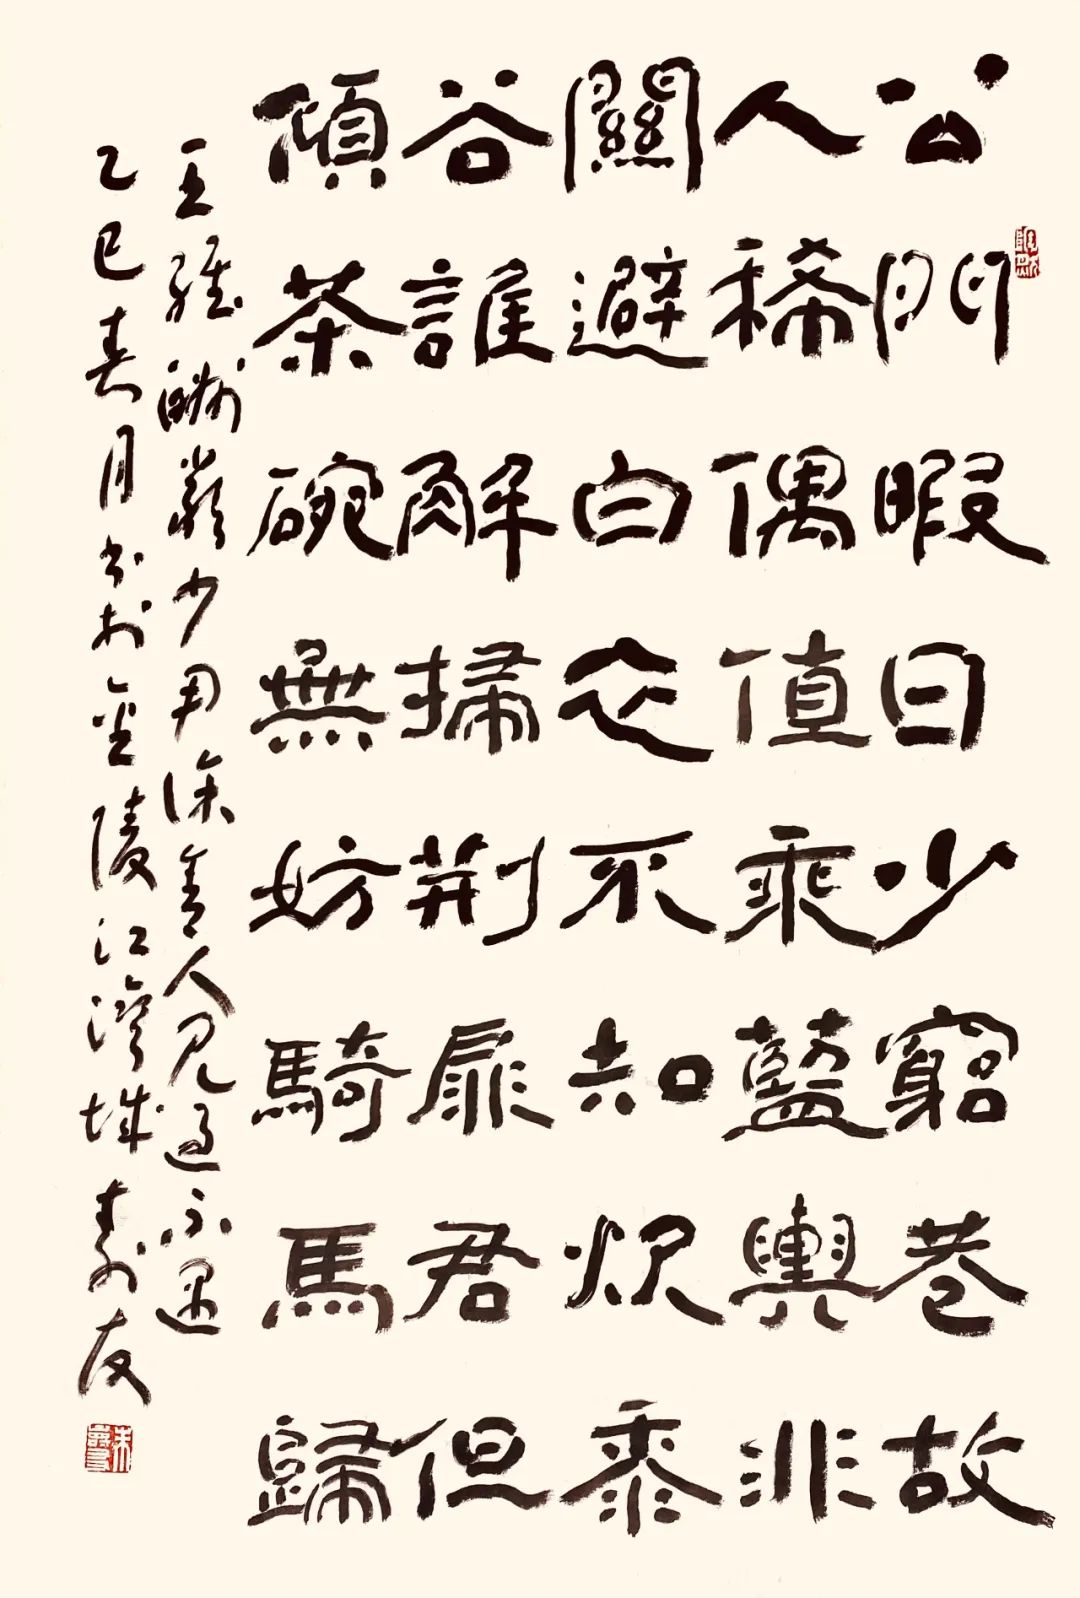 公門暇日少窮巷故
人稀偶值乘藍輿非
關避白衣不知炊黍
谷誰解掃荊扉君但
傾茶碗無妨騎馬歸
王維酬嚴少尹徐舍人見過不遇
乙巳春月书於金陵江灣城壽友